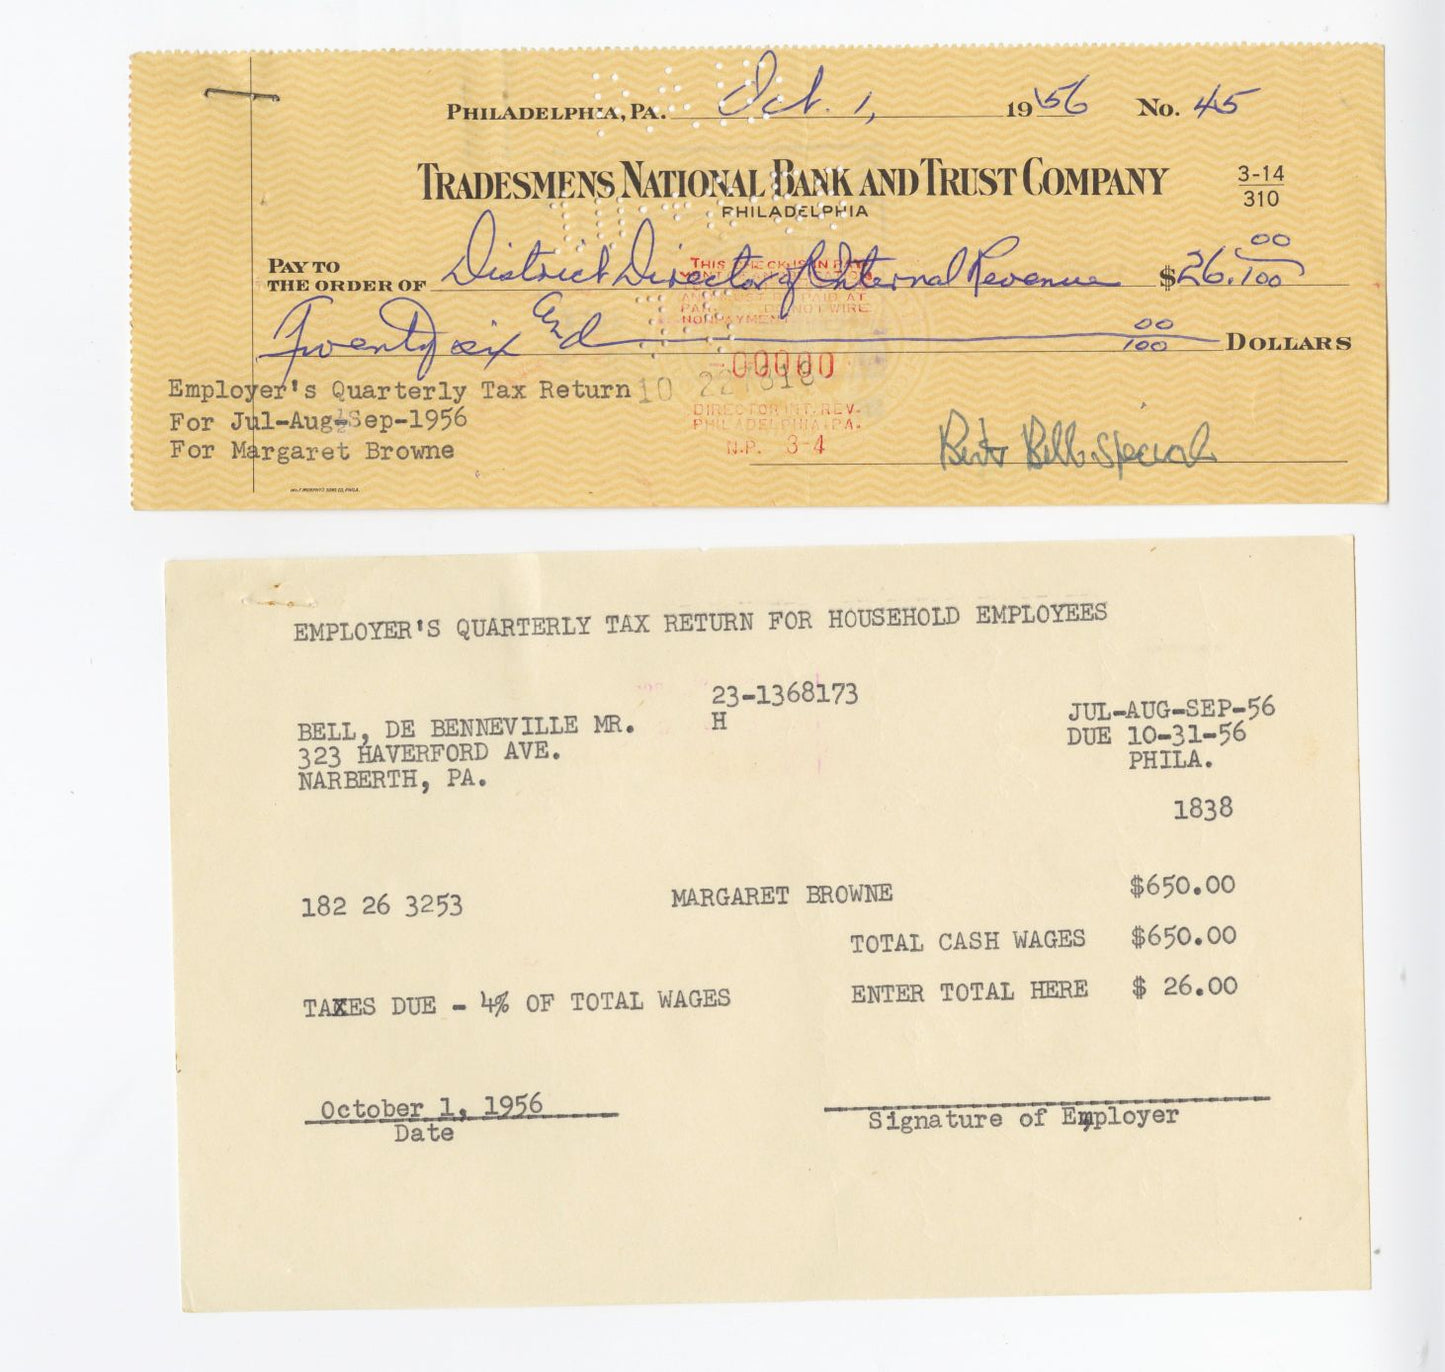 PHILADELPHIA, PA. Oct. 1, 1956 No. 45
TRADESMENS NATIONAL BANK AND TRUST COMPANY
PHILADELPHIA
3-14
310
PAY TO
THE ORDER OF District Director of Internal Revenue $26.00/100
Twenty six and 00/100 DOLLARS
THIS CHECK IS IN PAY
PAID AT
DO NOT WIRE
NONPAYMENT
00000
Employer's Quarterly Tax Return
10 22
For Jul-Aug-Sep-1956
For Margaret Browne
DIRECTOR INT. REV.
PHILADELPHIA, PA.
N.P. 3-4
Bert Bell Special
EMPLOYER'S QUARTERLY TAX RETURN FOR HOUSEHOLD EMPLOYEES
23-1368173
H
BELL, DE BENNEVILLE MR.
323 HAVERFORD AVE.
NARBERTH, PA.
JUL-AUG-SEP-56
DUE 10-31-56
PHILA.
1838
182 26 3253 MARGARET BROWNE $650.00
TOTAL CASH WAGES $650.00
TAXES DUE - 4% OF TOTAL WAGES ENTER TOTAL HERE $ 26.00
October 1, 1956
Date
Signature of Employer